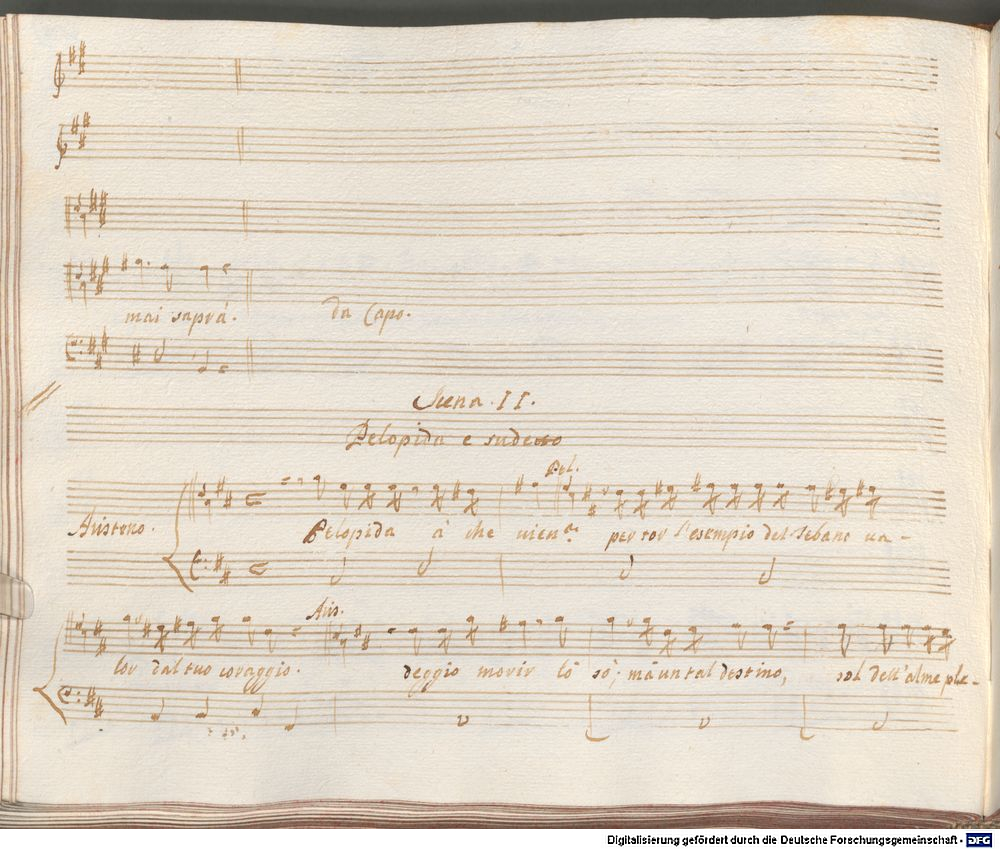 mai saprá. Da Capo.
Scena. II.
Pelopida e sudetto
Pel.
Aristeno. Pelopida à che vieni? per tor l'esempio del Tebano va-
Aris.
lor dal tuo coraggio. deggio morir lò sò; mà un tal destino, sol dell'alme ple-
Digitalisierung gefördert durch die Deutsche Forschungsgemeinschaft - DFG